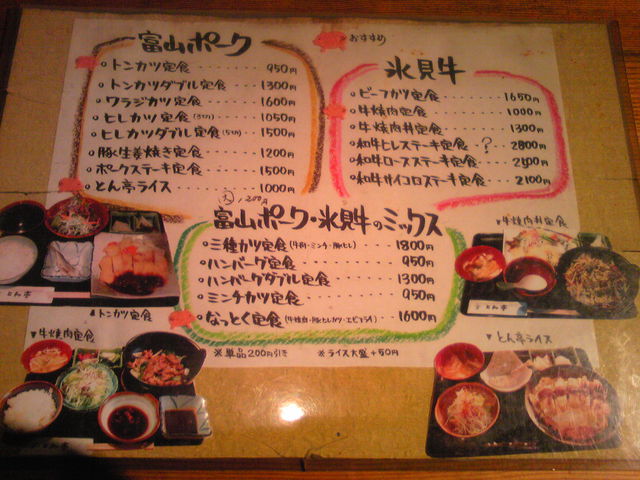 富山ポーク
おすすめ
トンカツ定食 950円
トンカツダブル定食 1300円
ワラジカツ定食 1600円
ヒレカツ定食 1050円
ヒレカツダブル定食 1500円
豚生姜焼き定食 1200円
ポークステーキ定食 1500円
とん亭ライス 1000円
大 1200円
氷見牛
ビーフカツ定食 1650円
牛焼肉定食 1000円
牛焼肉丼定食 1300円
和牛ヒレステーキ定食 ? 2800円
和牛ロースステーキ定食 2500円
和牛サイコロステーキ定食 2100円
富山ポーク・氷見牛のミックス
三種カツ定食 (牛肉・ミンチ・豚ヒレ) 1800円
ハンバーグ定食 950円
ハンバーグダブル定食 1300円
ミンチカツ定食 950円
なっとく定食 (牛焼肉・豚ヒレカツ・エビフライ) 1600円
※単品200円引き ※ライス大盛+50円
トンカツ定食
▼牛焼肉定食
▼牛焼肉丼定食
▼とん亭ライス